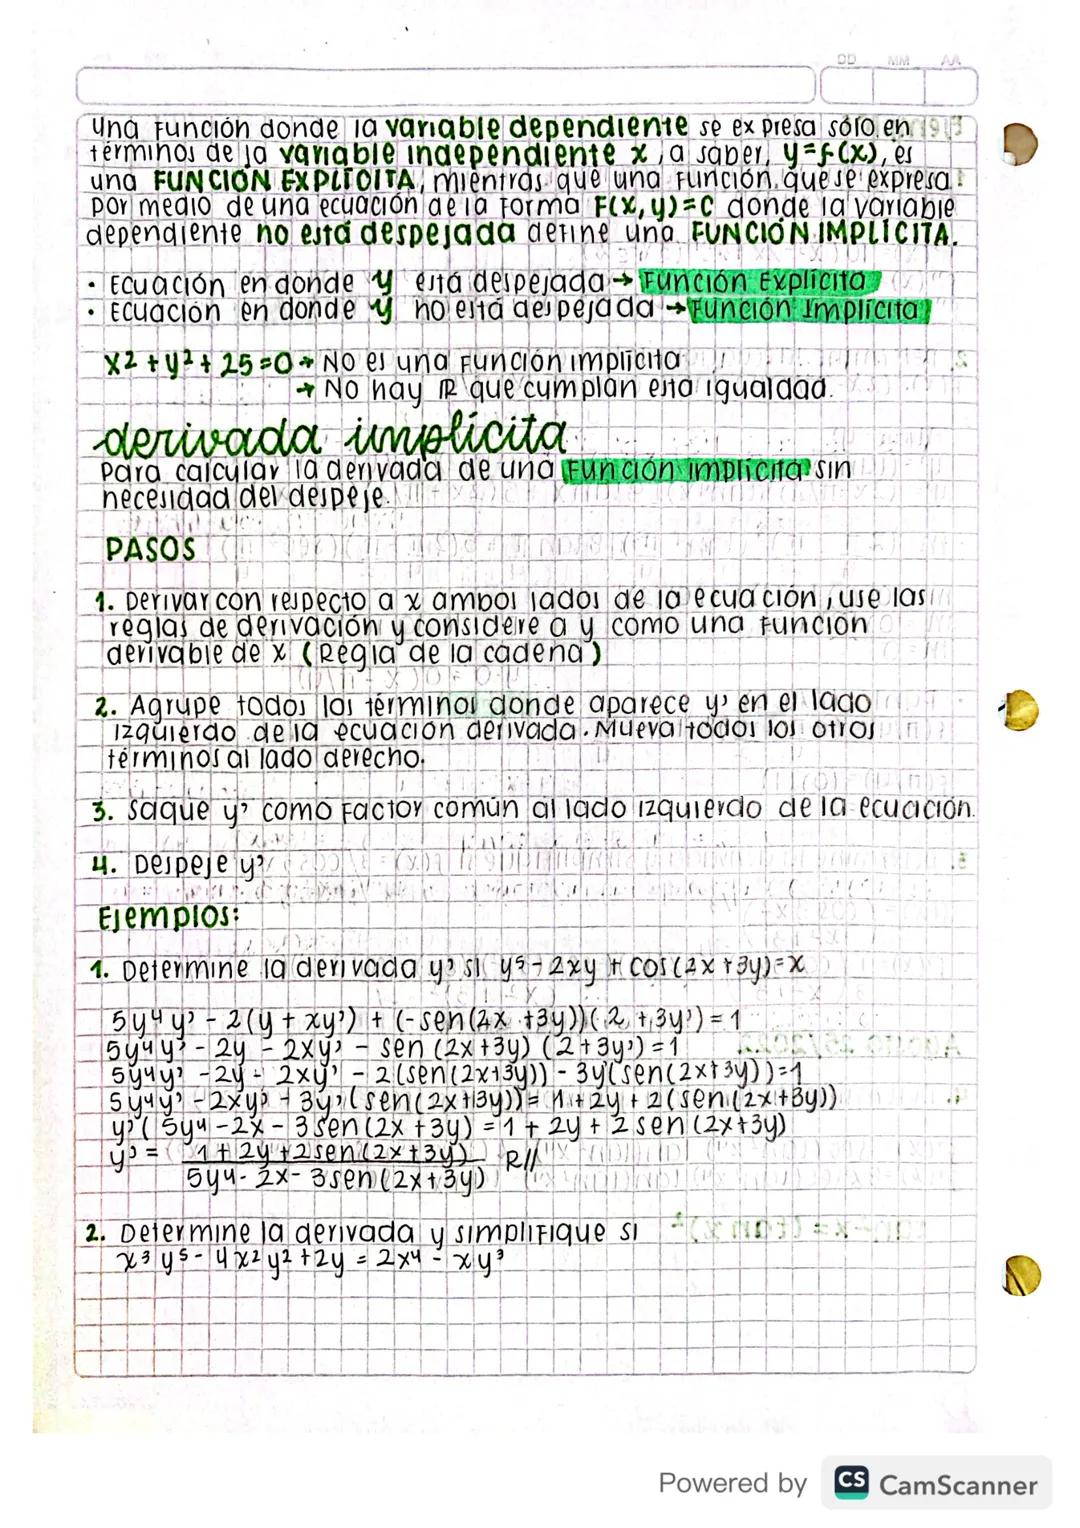 DD MM AA
Una función donde la variable dependiente se expresa sólo en
términos de la variable independiente x, a saber, y=f(x), es
una FUNCIÓN EXPLÍCITA, mientras que una función que se expresa
por medio de una ecuación de la forma F(x,y)=C donde la variable
dependiente no está despejada define una FUNCIÓN IMPLÍCITA.
• Ecuación en donde y está despejada → Función Explícita
• Ecuación en donde y no está despejada → Función Implícita
x2 + y² + 25 = 0 → No es una función implícita
→ No hay ℝ que cumplan esta igualdad.
derivada implícita
Para calcular la derivada de una Función implícita sin
necesidad del despeje.
PASOS
1. Derivar con respecto a x ambos lados de la ecuación, use las
reglas de derivación y considere a y como una función
derivable de x (Regla de la cadena)
2. Agrupe todos los términos donde aparece y' en el lado
izquierdo de la ecuación derivada. Mueva todos los otros
términos al lado derecho.
3. Saque y' como factor común al lado izquierdo de la ecuación.
4. Despeje y'
Ejemplos:
1. Determine la derivada y' si y⁵ - 2xy + cos(2x+3y)=x
5y⁴y' - 2(y + xy') + (-sen(2x+3y))(2+3y') = 1
5y⁴y' - 2y - 2xy' - sen(2x+3y)(2+3y') = 1
5y⁴y' - 2y - 2xy' - 2(sen(2x+3y)) - 3y'(sen(2x+3y))=1
5y⁴y' - 2xy' - 3y'(sen(2x+3y)) = 1 + 2y + 2(sen(2x+3y))
y'(5y⁴ - 2x - 3sen(2x+3y) = 1 + 2y + 2sen(2x+3y)
y' = 1 + 2y + 2sen(2x+3y) R//
5y⁴ - 2x - 3sen(2x+3y)
2. Determine la derivada y simplifique si
x³y⁵ - 4x²y² + 2y = 2x⁴ - xy³
Powered by CS CamScanner